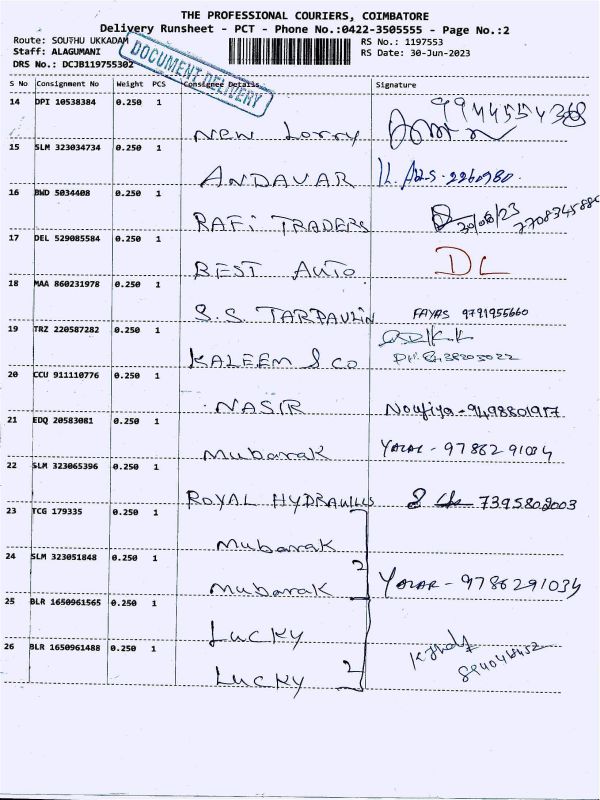 THE PROFESSIONAL COURIERS, COIMBATORE
Delivery Runsheet - PCT - Phone No.:0422-3505555 - Page No.:2
Route: SOUTHU UKKADAM
RS No.: 1197553
Staff: ALAGUMANI
RS Date: 30-Jun-2023
DRS No.: DCJB119755302
DOCUMENT DELIVERY
S No Consignment No Weight PCS Consignee Details Signature
14 DPI 10538384 0.250 1
New Lorry
15 SLM 323034734 0.250 1
ANDAVAR
16 BWD 5034408 0.250 1
RAFI TRADERS 30/06/23
17 DEL 529085584 0.250 1
BEST AUTO DL
18 MAA 860231978 0.250 1
S.S. TARPAULIN FAYAS 9791955660
19 TRZ 220587282 0.250 1
KALEEM & CO
20 CCU 911110776 0.250 1
NASIR Noufiya-
21 EDQ 20583081 0.250 1
Mubarak - 9786291034
22 SLM 323065396 0.250 1
ROYAL HYDRAULICS 7395802003
23 TCG 179335 0.250 1
Mubarak
24 SLM 323051848 0.250 1
2
Mubarak - 9786291034
25 BLR 1650961565 0.250 1
Lucky
26 BLR 1650961488 0.250 1
Lucky 2